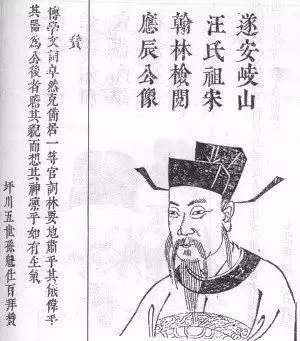 遂安崚山
汪氏祖宋
翰林檢閱
應辰公像
贊
博學文詞卓然充儒居一等官詞林要地肅乎其威偉乎
其器為公後者瞻其貌而想其神凜乎如有生氣
坪川五世孫魁仕百拜贊